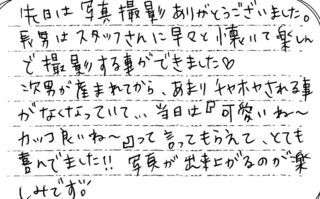 先日は写真撮影ありがとうございました。
長男はスタッフさんに早々と懐いて楽しん
で撮影する事ができました♡
次男が産まれてから、あまりチヤホヤされる事
がなくなっていて…当日は『可愛いね〜
カッコ良いね〜』って言ってもらえて、とても
喜んでました!!写真が出来上がるのが楽
しみです。